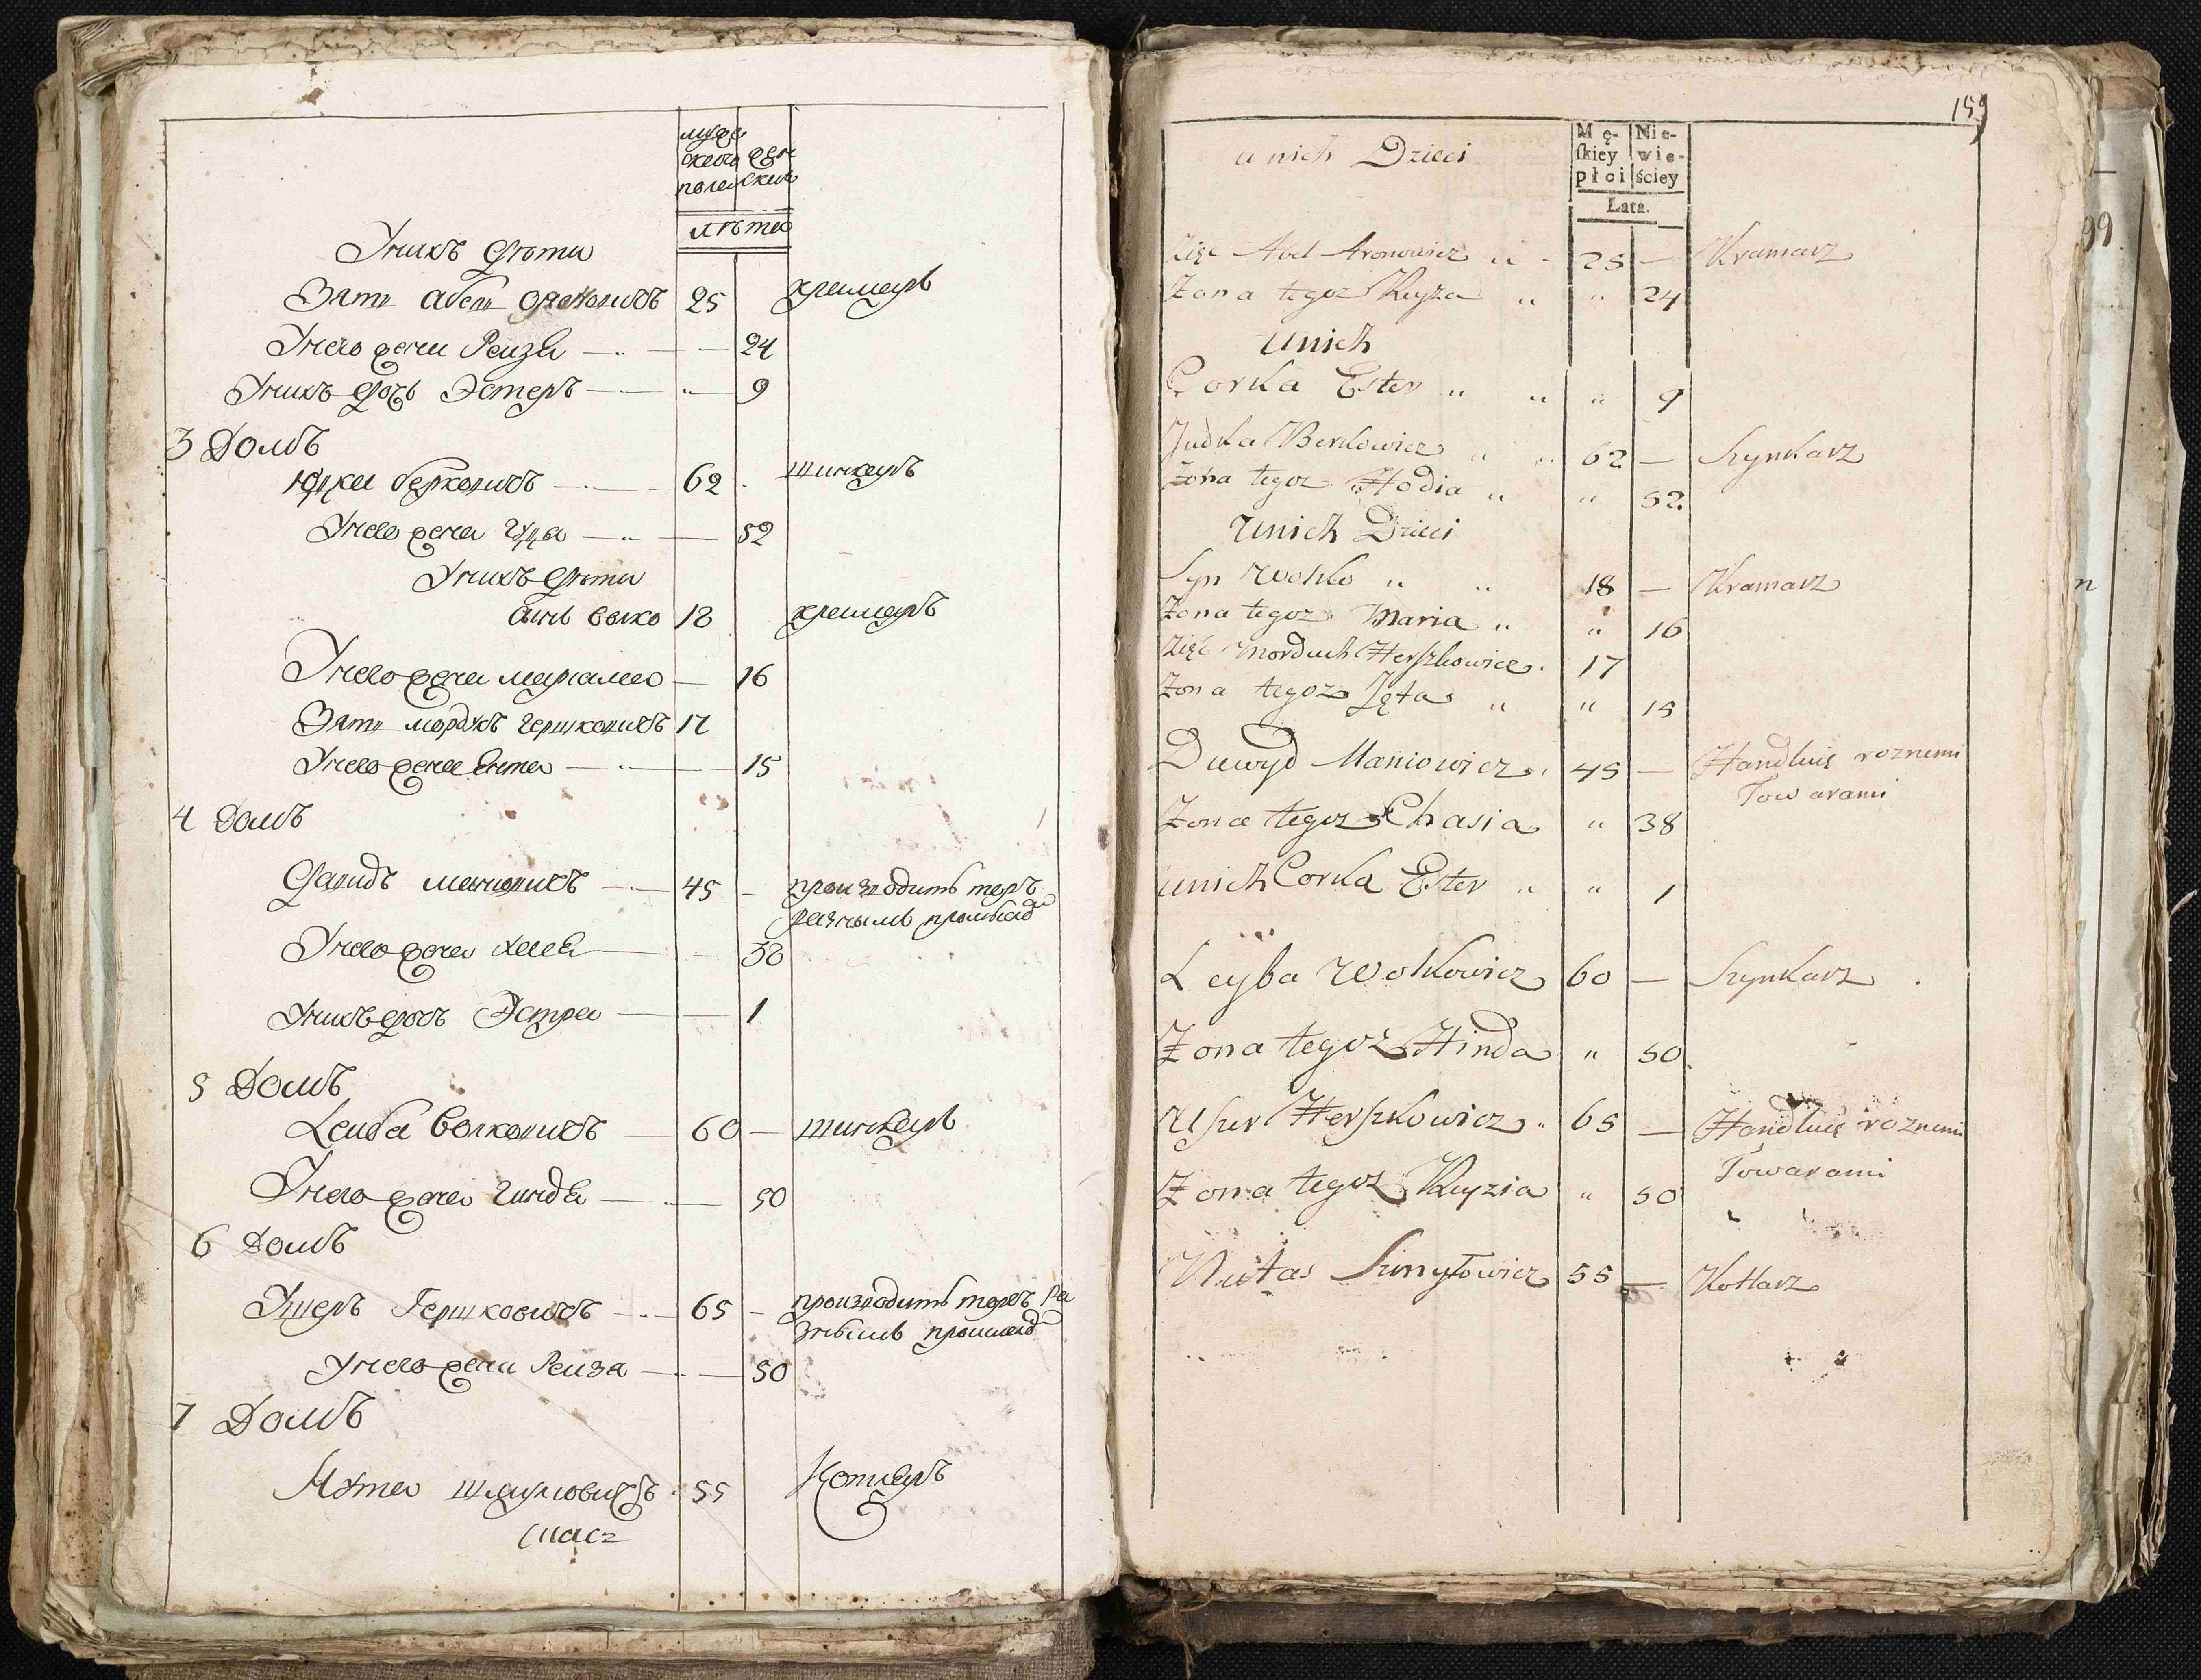 муже
ского жен
пола скаго
лѣта
У нихъ дѣти
Зятъ Абель Ароновичъ 25 крамаръ
У него жена Рейза — — 24
У нихъ дочь Эстеръ — " 9
3 Домъ
Юдка Берковичъ — 62 шинкаръ
У него жена Гудя — — 52
У нихъ дѣти
Сынъ Волко 18 крамаръ
У него жена Мариама — 16
Зять Мордухъ Гершковичъ 17
У него жена Ента — — 15
4 Домъ
Давидъ Маніовичъ — 45 — производитъ торгъ
разнымъ промысло
У него жена Хася — — 38
У нихъ дочь Эстра — — 1
5 Домъ
Лейба Волковичъ — 60 — шинкаръ
У него жена Гинда — — 50
6 Домъ
Ушеръ Гершковичъ — 65 — производитъ торгъ ра
знымъ промысло
У него жена Рейза — — 50
7 Домъ
Нута Шмуйловичъ 55 Котляръ
159
u nich Dzieci
Mę- Nie-
ſkiey wie-
płci ściey
Lata.
Zięć Abel Aronowicz " 25 — Kramarz
Zona tegoz Reyza " " 24
u nich
Corka Ester " " " 9
Judka Berkowicz " " 62 — Szynkarz
Zona tegoz Hodia " " 52
u nich Dzieci
Syn Wolko " " 18 — Kramarz
Zona tegoz Maria " " 16
Zięć Morduch Herszkowicz 17
Zona tegoz Jęta " " 15
Dawyd Maniowicz 45 — Handluię roznemi
Towarami
Zona tegoz Chasia " 38
u nich Corka Ester " " 1
Leyba Wolkowicz 60 — Szynkarz
Zona tegoz Hinda " 50
Uszer Herszkowicz " 65 — Handluię roznemi
Towarami
Zona tegoz Reyzia " 50
Nutas Szmyłowicz 55 — Kotlarz
99
n